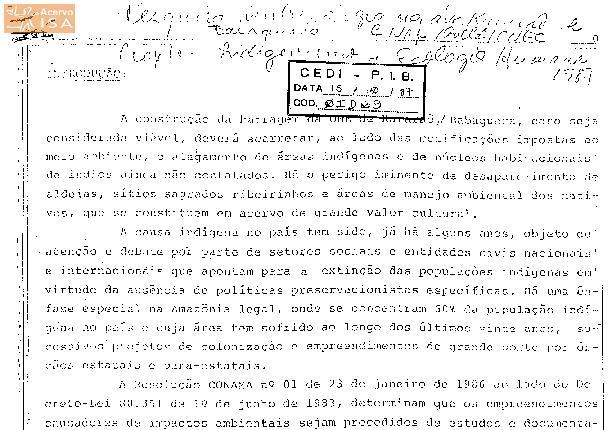 Acervo
ISA
Pesquisa
Projeto Indigenismo e Ecologia Humana
1987
INTRODUÇÃO
CEDI - P.I.B.
DATA 15 / / 87
COD. 0ID09
A construção da Barragem da UHE de /Babaquara, caso seja
considerada viável, deverá acarretar, ao lado das modificações impostas ao
meio ambiente, o alagamento de áreas indígenas e de núcleos habitacionais
de índios ainda não contatados. Há o perigo iminente de desaparecimento de
aldeias, sítios sagrados ribeirinhos e áreas de manejo ambiental dos nati-
vos, que se constituem em acervo de grande valor cultural.
A causa indígena no país tem sido, já há alguns anos, objeto de
atenção e debate por parte de setores sociais e entidades civis nacionais
e internacionais que apontam para a extinção das populações indígenas em
virtude da ausência de políticas preservacionistas específicas. Há uma ên-
fase especial na Amazônia legal, onde se concentram 60% da população indí-
gena no país e cuja área tem sofrido ao longo dos últimos vinte anos, su-
cessivos projetos de colonização e empreendimentos de grande porte por ór-
gãos estatais e para-estatais.
A Resolução CONAMA nº 01 de 23 de janeiro de 1986 ao lado do De
creto-Lei 88.351 de de junho de 1983, determinam que os empreendimentos
causadores de impactos ambientais sejam precedidos de estudos e documenta-